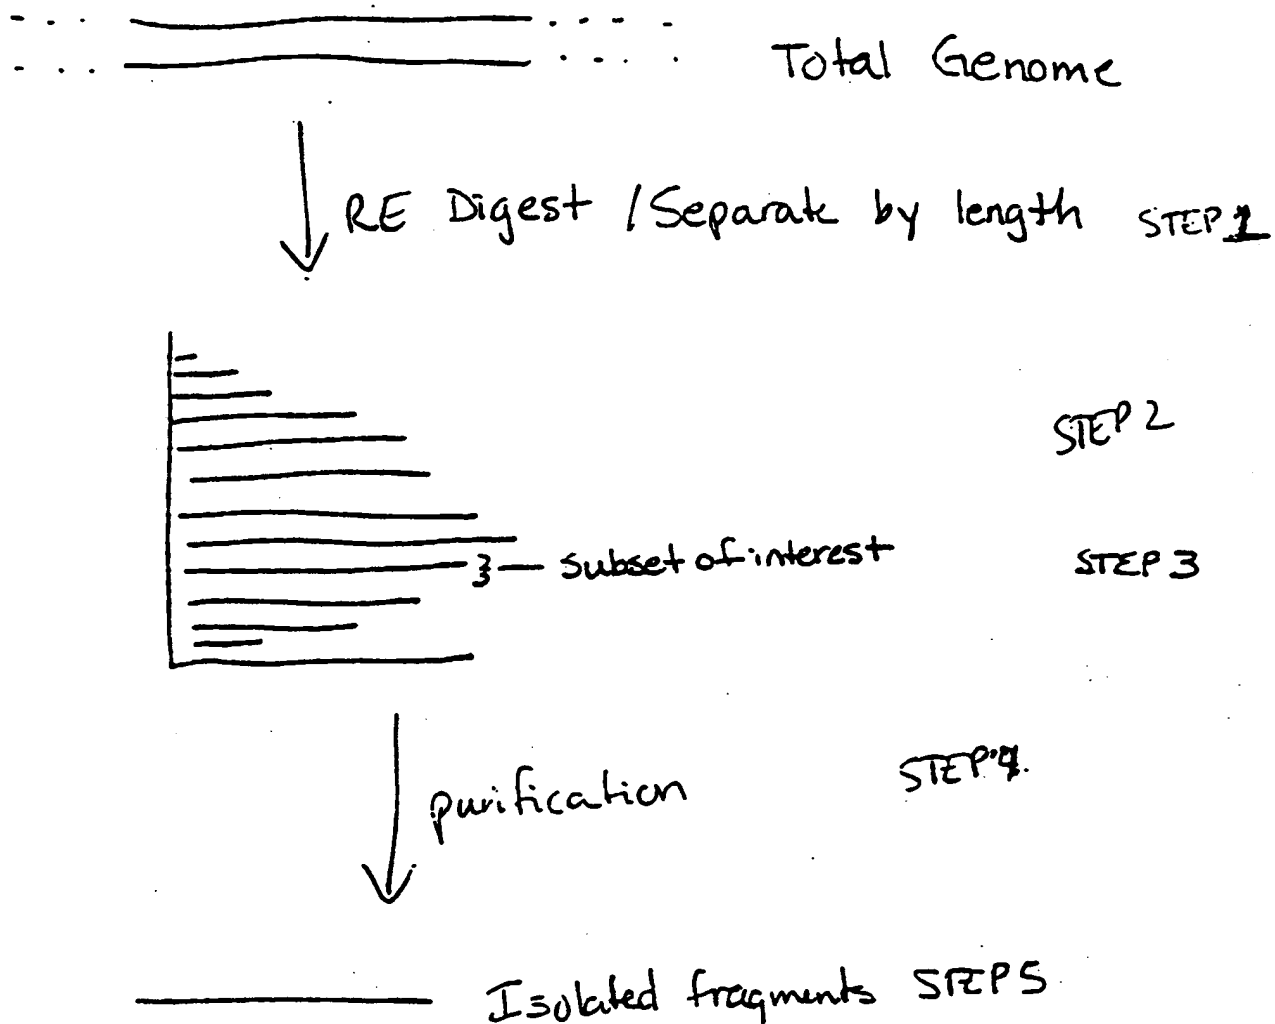 Total Genome
RE Digest / Separate by length STEP 1
STEP 2
3 — subset of interest STEP 3
purification STEP 4.
Isolated fragments STEP 5